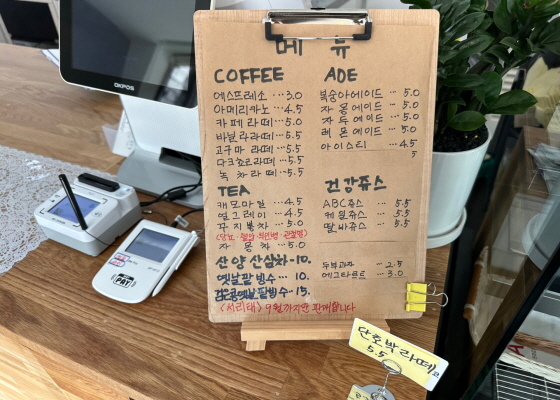 OKPOS
메뉴
COFFEE
에스프레소 ··· 3.0
아메리카노 ··· 4.5
카페라떼 ··· 5.0
바닐라라떼 ··· 5.5
고구마라떼 ··· 5.5
다크쵸코라떼 ··· 5.5
녹차라떼 ··· 5.5
TEA
캐모마일 ··· 4.5
얼그레이 ··· 4.5
꾸지뽕차 ··· 5.0
자몽차 ··· 5.0
산양산삼차 · 10.
옛날팥빙수 ··· 10.
검은콩옛날팥빙수 ·· 15.
(서리태) 9월까지만 판매합니다
ADE
복숭아에이드 ··· 5.0
자몽에이드 ··· 5.0
자두에이드 ··· 5.0
레몬에이드 ··· 5.0
아이스티 ··· 4.5
5
건강쥬스
ABC쥬스 ··· 5.5
케일쥬스 ··· 5.5
딸바쥬스 ··· 5.5
두부과자 ··· 2.5
에그타르트 ··· 3.0
단호박라떼
5.5
PAY